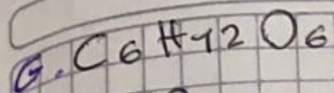 G. C6H12O6